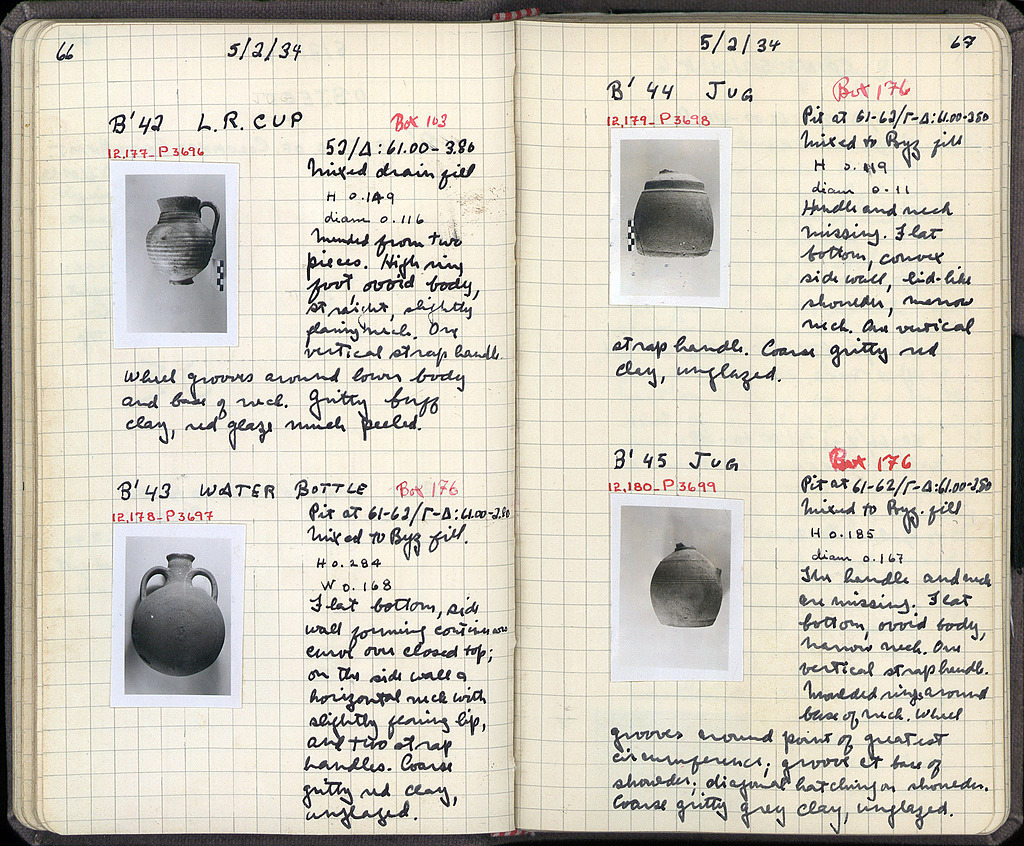 66
5/2/34
B' 42 L.R. CUP Box 103
12,177-P 3696
52/Δ:61.00-3.80
Mixed drain fill
H 0.149
diam 0.116
Mended from two
pieces. High ring
foot ovoid body,
straight, slightly
flaring neck. One
vertical strap handle.
Wheel grooves around lower body
and base of neck. Gritty buff
clay, red glaze much peeled.
B' 43 WATER BOTTLE Box 176
12,178-P 3697
Pit at 61-62/Γ-Δ:61.00-2.80
Mixed to Byz fill.
H 0.284
W 0.168
Flat bottom, side
wall forming continuous
curve over closed top;
on the side wall a
horizontal neck with
slightly flaring lip,
and two strap
handles. Coarse
gritty red clay,
unglazed.
5/2/34
67
B' 44 JUG Box 176
12,179-P 3698
Pit at 61-62/Γ-Δ:61.00-2.80
Mixed to Byz fill
H 0.119
diam 0.11
Handle and neck
missing. Flat
bottom, convex
side wall, lid-like
shoulder, narrow
neck. One vertical
strap handle. Coarse gritty red
clay, unglazed.
B' 45 JUG Box 176
12,180-P 3699
Pit at 61-62/Γ-Δ:61.00-2.80
Mixed to Byz. fill
H 0.185
diam 0.167
The handle and neck
are missing. Flat
bottom, ovoid body,
narrow neck. One
vertical strap handle.
Moulded rings around
base of neck. Wheel
grooves around point of greatest
circumference; groove at base of
shoulder; diagonal hatching on shoulder.
Coarse gritty grey clay, unglazed.